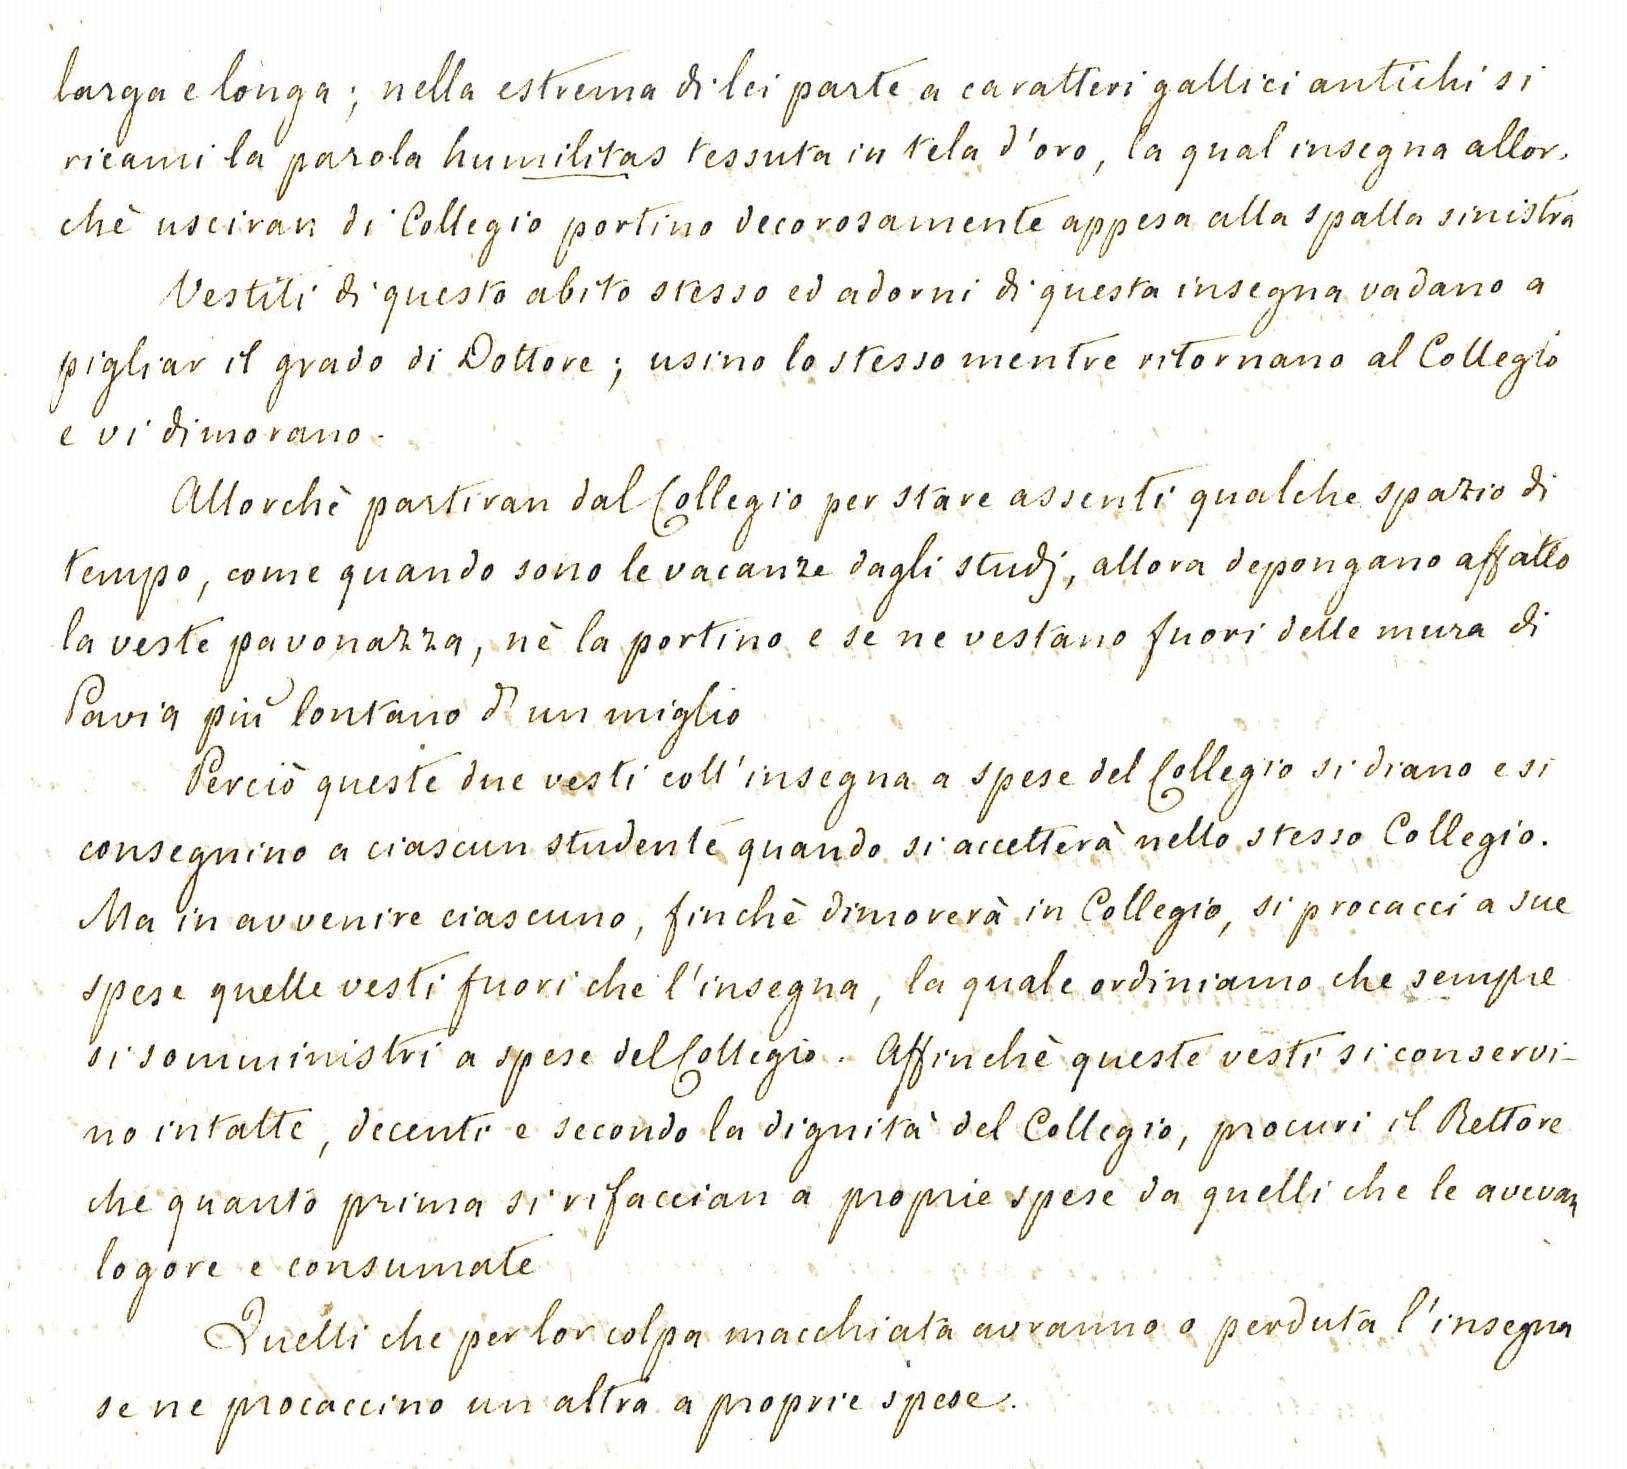 larga e longa; nella estrema di lei parte a caratteri gallici antichi si
ricami la parola humilitas tessuta in tela d'oro, la qual insegna allor-
chè usciran di Collegio portino decorosamente appesa alla spalla sinistra
Vestiti di questo abito stesso ed adorni di questa insegna vadano a
pigliar il grado di Dottore; usino lo stesso mentre ritornano al Collegio
e vi dimorano.
Allorchè partiran dal Collegio per stare assenti qualche spazio di
tempo, come quando sono le vacanze dagli studj, allora depongano affatto
la veste pavonazza, nè la portino e se ne vestano fuori delle mura di
Pavia più lontano d'un miglio
Perciò queste due vesti coll'insegna a spese del Collegio si diano e si
consegnino a ciascun studente quando si accetterà nello stesso Collegio.
Ma in avvenire ciascuno, finchè dimorerà in Collegio, si procacci a sue
spese quelle vesti fuori che l'insegna, la quale ordiniamo che sempre
si somministri a spese del Collegio. Affinchè queste vesti si conservi-
no intatte, decenti e secondo la dignità del Collegio, procuri il Rettore
che quanto prima si rifaccian a proprie spese da quelli che le avevan
logore e consumate
Quelli che per lor colpa macchiata avranno o perduta l'insegna
se ne procaccino un altra a proprie spese.